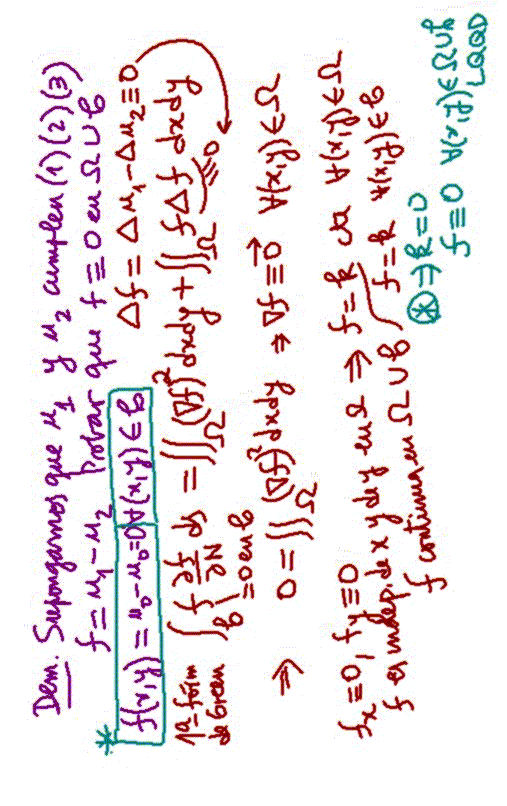 Dem. Supongamos que u₁ y u₂ cumplen (1)(2)(3)
f = u₁ - u₂ Probar que f ≡ 0 en Ω ∪ ℓ
* f(x,y) = u₀ - u₀ = 0 ∀(x,y) ∈ ℓ Δf = Δu₁ - Δu₂ ≡ 0
1ª fórm de Green ∫_ℓ f ∂f/∂N ds = ∬_Ω (∇f)² dxdy + ∬_Ω f Δf dxdy
≡ 0 en ℓ ≡ 0
⇒ 0 = ∬_Ω (∇f)² dxdy ⇒ ∇f ≡ 0⃗ ∀(x,y) ∈ Ω
f_x ≡ 0, f_y ≡ 0
f es indep. de x y de y en Ω ⇒ f = k cte ∀(x,y) ∈ Ω
f continua en Ω ∪ ℓ f = k ∀(x,y) ∈ ℓ
⊛ ⇒ k = 0
f ≡ 0 ∀(x,y) ∈ Ω ∪ ℓ
LQQD